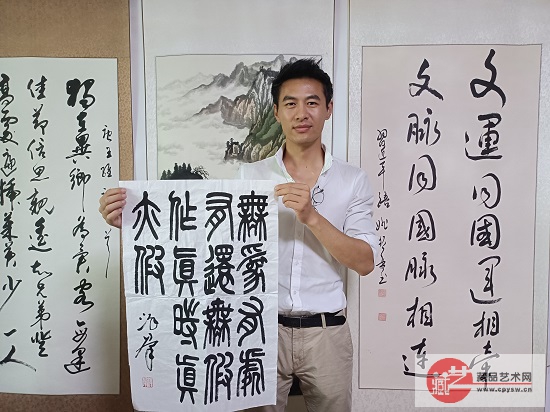 文運同國運相牽
文脈同國脈相連
習近平語
無為有處
有還無假
作真時真
亦假
唐王維詩
獨在異鄉為異客每逢
佳節倍思親遙知兄弟登
高處遍插茱萸少一人
藏艺
藏品艺术网
www.cpysw.cn